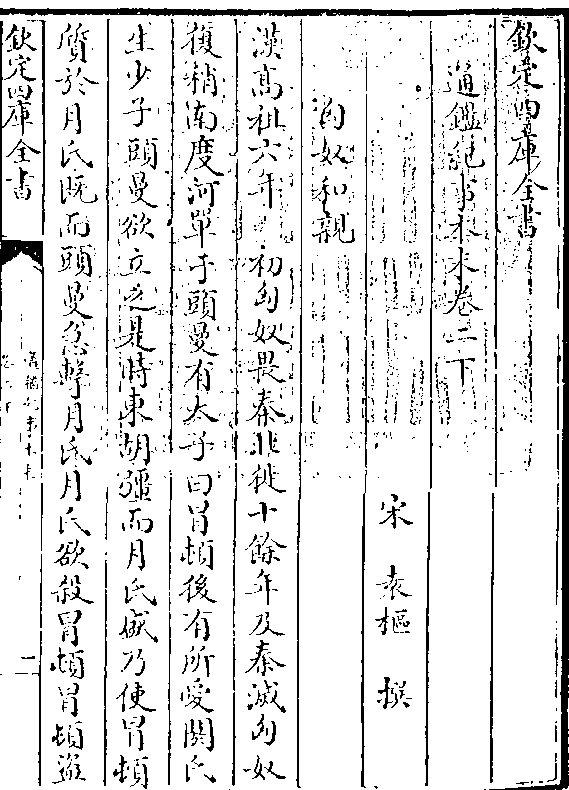 欽定四庫全書
通鑑紀事本末卷二下
宋 袁樞 撰
匈奴和親
漢高祖六年初匈奴畏秦北徙十餘年及秦滅匈奴
復稍南度河單于頭曼有太子曰冒頓後有所愛閼氏
生少子頭曼欲立之是時東胡彊而月氏盛乃使冒頓
質於月氏既而頭曼急擊月氏月氏欲殺冒頓冒頓盜
欽定四庫全書